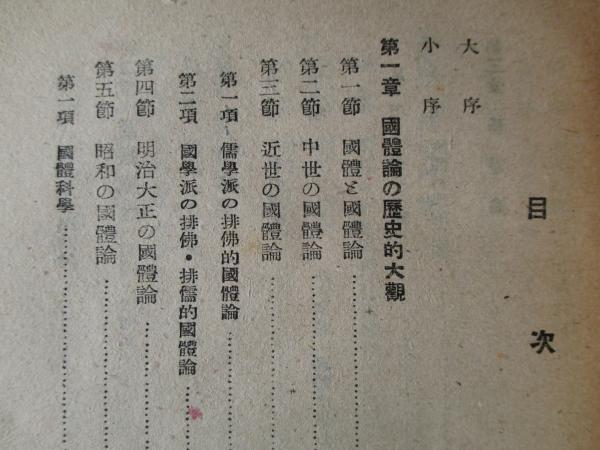 目次
大序
小序
第一章 國體論の歷史的大觀
第一節 國體と國體論
第二節 中世の國體論
第三節 近世の國體論
第一項 儒學派の排佛的國體論
第二項 國學派の排佛・排儒的國體論
第四節 明治大正の國體論
第五節 昭和の國體論
第一項 國體科學